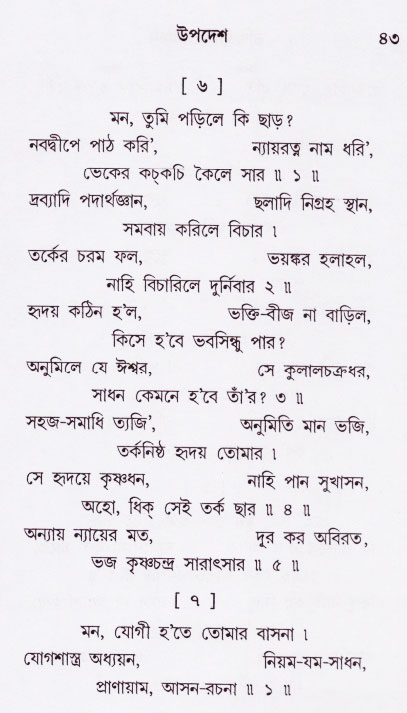 উপদেশ ৪৩
[ ৬ ]
মন, তুমি পড়িলে কি ছাড়?
নবদ্বীপে পাঠ করি’, ন্যায়রত্ন নাম ধরি’,
ভেকের কচ্‌কচি কৈলে সার ॥ ১ ॥
দ্রব্যাদি পদার্থজ্ঞান, ছলাদি নিগ্রহ স্থান,
সমবায় করিলে বিচার ।
তর্কের চরম ফল, ভয়ঙ্কর হলাহল,
নাহি বিচারিলে দুর্নিবার ২ ॥
হৃদয় কঠিন হ’ল, ভক্তি-বীজ না বাড়িল,
কিসে হ’বে ভবসিন্ধু পার?
অনুমিলে যে ঈশ্বর, সে কুলালচক্রধর,
সাধন কেমনে হ’বে তাঁ’র? ৩ ॥
সহজ-সমাধি ত্যজি’, অনুমিতি মান ভজি,
তর্কনিষ্ঠ হৃদয় তোমার ।
সে হৃদয়ে কৃষ্ণধন, নাহি পান সুখাসন,
অহো, ধিক্ সেই তর্ক ছার ॥ ৪ ॥
অন্যায় ন্যায়ের মত, দূর কর অবিরত,
ভজ কৃষ্ণচন্দ্র সারাৎসার ॥ ৫ ॥
[ ৭ ]
মন, যোগী হ’তে তোমার বাসনা ।
যোগশাস্ত্র অধ্যয়ন, নিয়ম-যম-সাধন,
প্রাণায়াম, আসন-রচনা ॥ ১ ॥